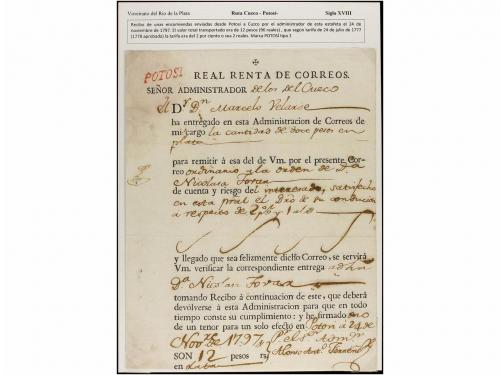 Virreinato del Río de la Plata Ruta Cuzco - Potosí- Siglo XVIII
Recibo de unas encomiendas enviadas desde Potosí a Cuzco por el administrador de esta estafeta el 24 de
noviembre de 1797. El valor total transportado era de 12 pesos (96 reales), que según tarifa de 24 de julio de 1777
(1778 aprobada) la tarifa era del 2 por ciento o sea 2 reales. Marca POTOSI tipo 2
POTOSI
REAL RENTA DE CORREOS.
SEÑOR ADMINISTRADOR de los del Cuzco
Dn Marcelo Velarse
ha entregado en esta Administracion de Correos de
mi cargo la cantidad de doce pesos en
plata
para remitir á esa del de Vm. por el presente Cor-
reo ordinario a la orden de Da
Nicolasa Tovar
de cuenta y riesgo del interesado, satisfecho
en esta pral el Dro de su conduccion
a respecto de 2 p
y llegado que sea felizmente dicho Correo, se servirá
Vm. verificar la correspondiente entrega
Da Nicolasa Tovar
tomando Recibo á continuacion de este, que deberá
devolverse á esta Administracion para que en todo
tiempo conste su cumplimiento; y he firmado uno
de un tenor para un solo efecto en Potosi á 24 de
Novre de 1797
SON 12 pesos rs.
en plata